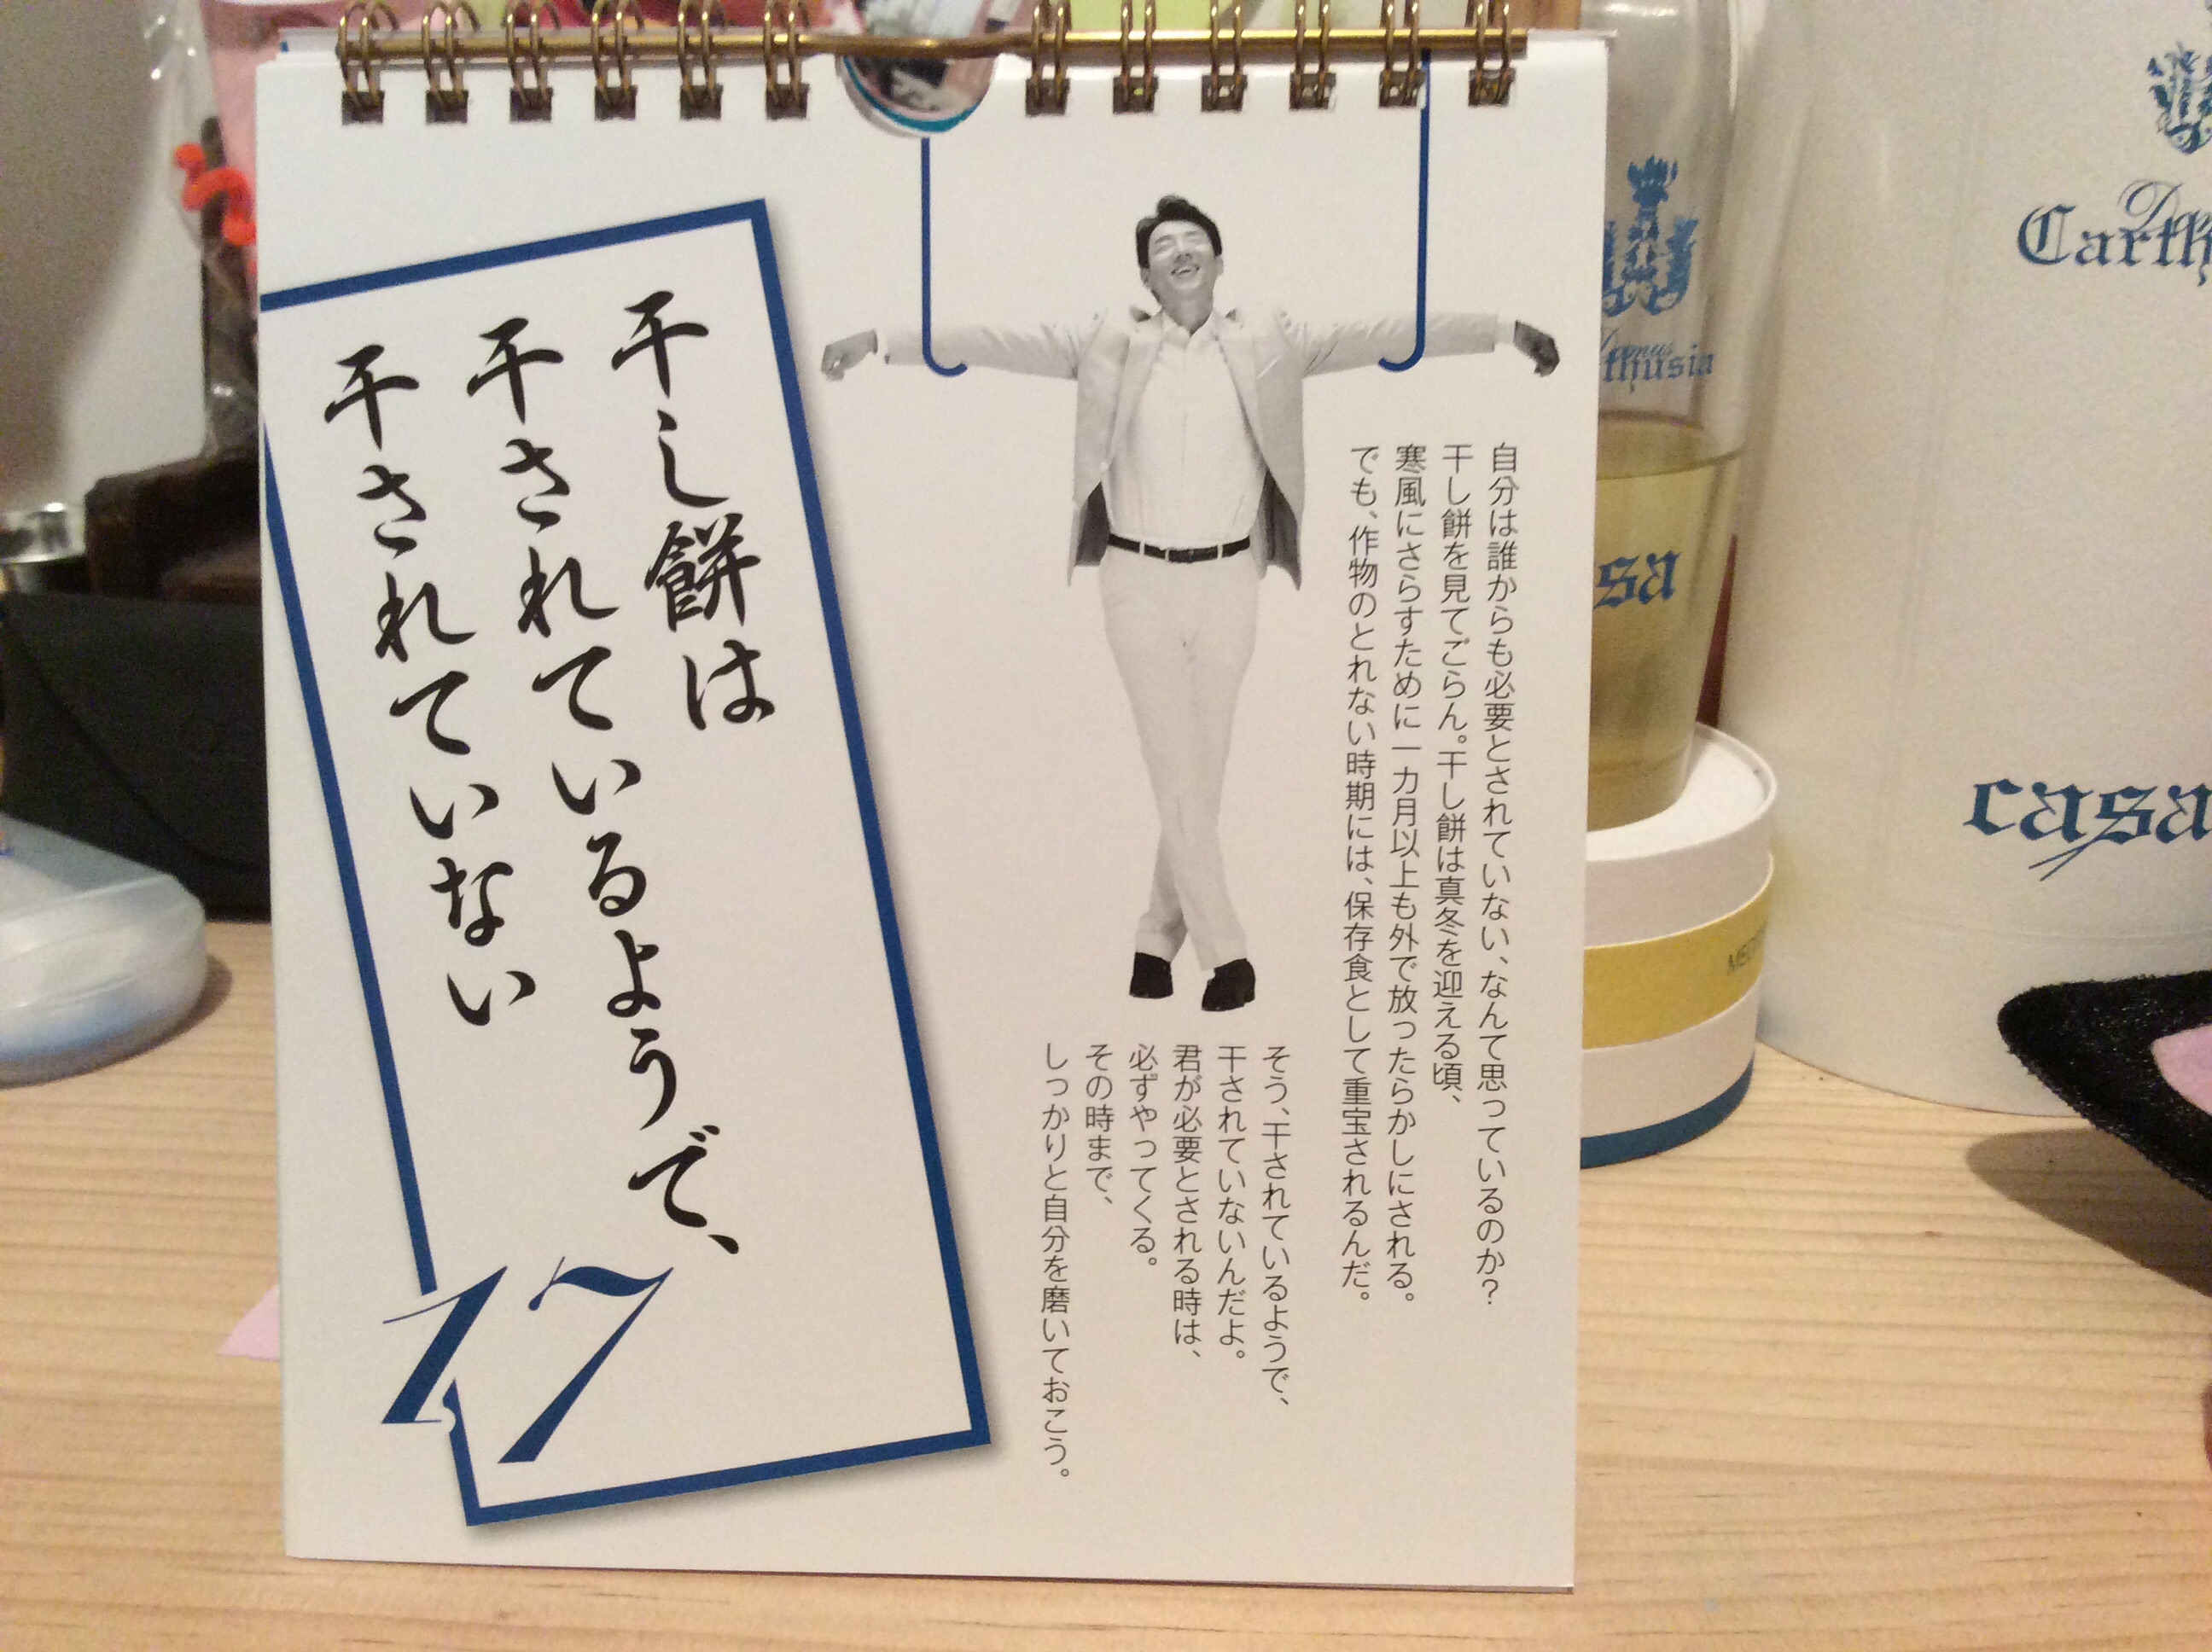 自分は誰からも必要とされていない、なんて思っているのか？
干し餅を見てごらん。干し餅は真冬を迎える頃、
寒風にさらすために一カ月以上も外で放ったらかしにされる。
でも、作物のとれない時期には、保存食として重宝されるんだ。
そう、干されているようで、
干されていないんだよ。
君が必要とされる時は、
必ずやってくる。
その時まで、
しっかりと自分を磨いておこう。
干し餅は
干されているようで、
干されていない
17
casa